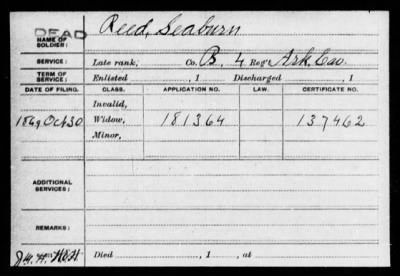 DEAD
NAME OF SOLDIER: Reed, Seaburn
SERVICE: Late rank, Co. B, 4 Reg't Ark. Cav.
TERM OF SERVICE: Enlisted , 1 Discharged , 1
DATE OF FILING. CLASS. APPLICATION NO. LAW. CERTIFICATE NO.
Invalid,
1869 Oct 30 Widow, 181364 137462
Minor,
ADDITIONAL SERVICES:
REMARKS:
Died , 1 , at